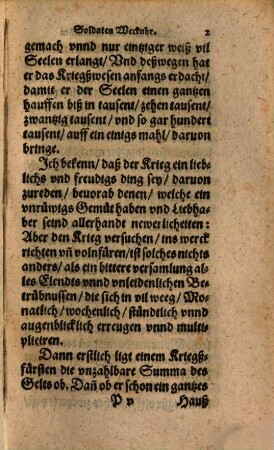 Soldaten Weckuhr. 2
gemach vnnd nur eintziger weiß vil
Seelen erlangt/ Vnd deßwegen hat
er das Kriegßwesen anfangs erdacht/
damit er der Seelen einen gantzen
hauffen biß in tausent/ zehen tausent/
zwantzig tausent/ vnd so gar hundert
tausent/ auff ein einigs mahl/ daruon
bringe.
Ich bekenn/ daß der Krieg ein lieb-
lichs vnd freudigs ding sey/ daruon
zureden/ beuorab denen/ welche ein
vnrüwigs Gemüt haben vnd Liebha-
ber seind allerhandt newerlicheiten:
Aber den Krieg versuchen/ ins werck
richten vñ volnfüren/ ist solches nichts
anders/ als ein bittere versamlung al-
les Elendts vnnd vnleidenlichen Be-
trübnussen/ die sich in vil weeg/ Mo-
natlich/ wochenlich/ stündtlich vnnd
augenblicklich erreugen vnnd multi-
pliciren.
Dann erstlich ligt einem Kriegß-
fürsten die vnzahlbare Summa des
Gelts ob. Dañ ob er schon ein gantzes
P v Hauß